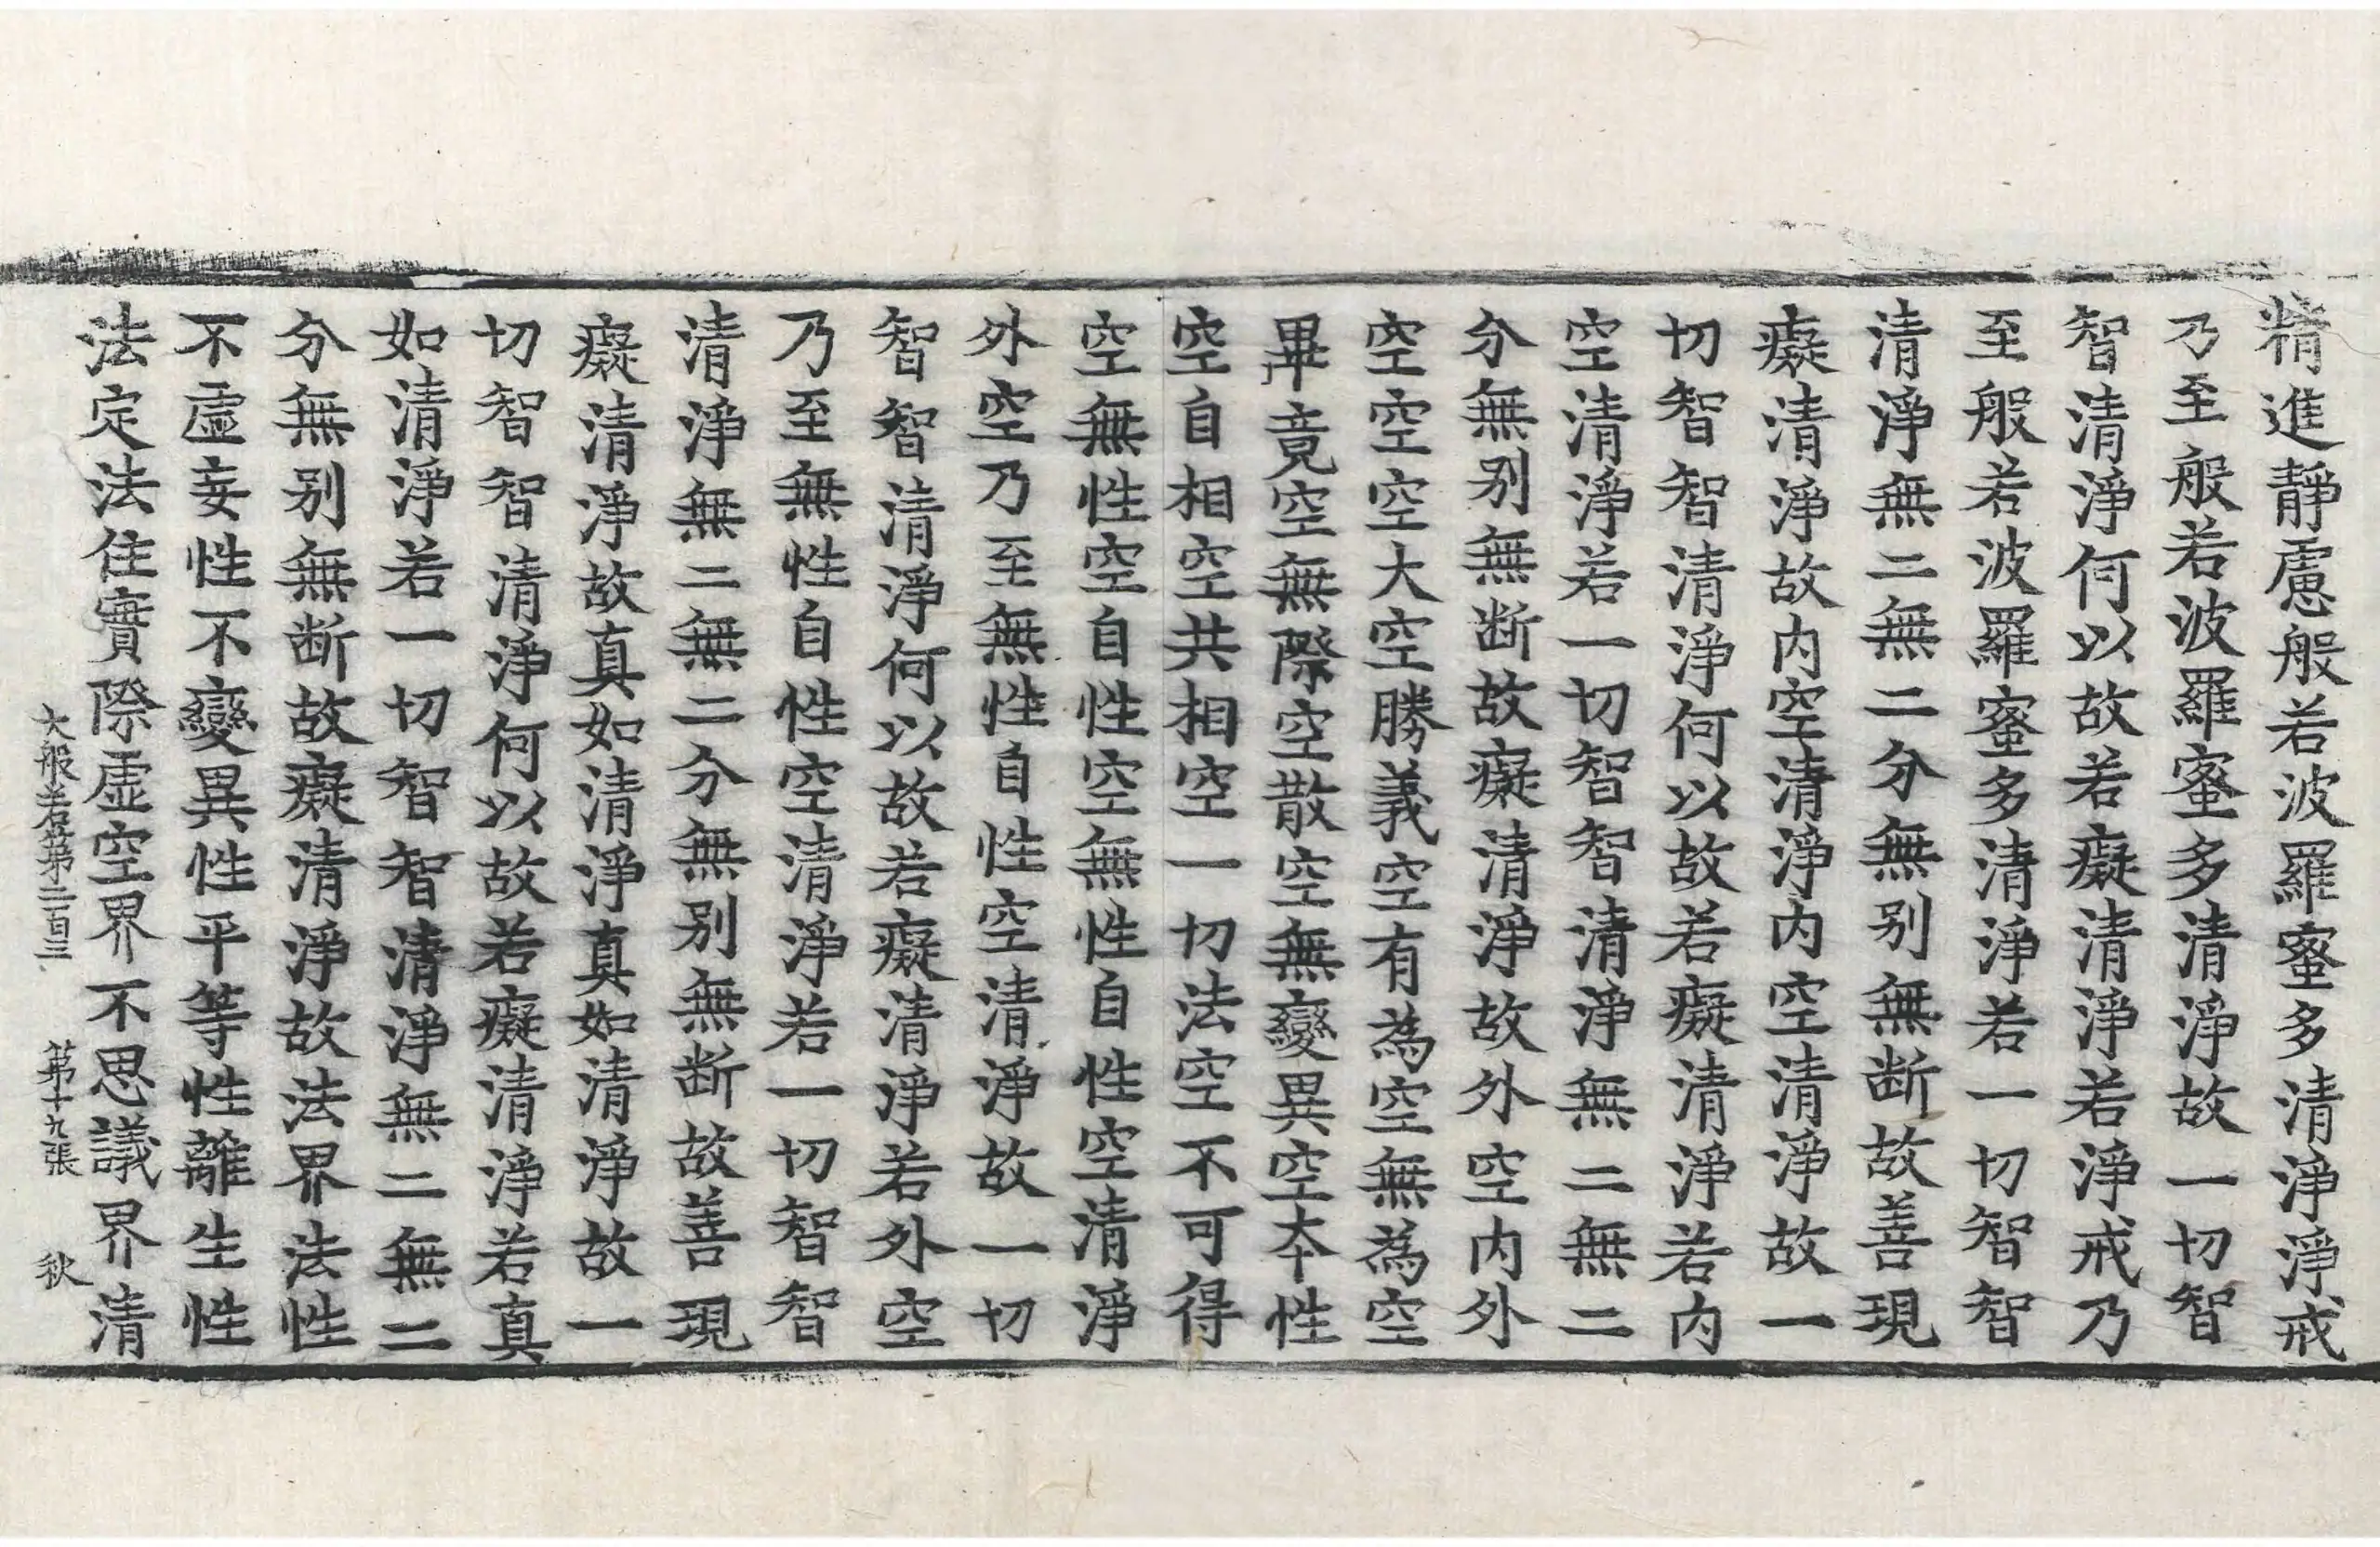 精進靜慮般若波羅蜜多清淨淨戒
乃至般若波羅蜜多清淨故一切智
智清淨何以故若癡清淨若淨戒乃
至般若波羅蜜多清淨若一切智智
清淨無二無二分無别無断故善現
癡清淨故内空清淨内空清淨故一
切智智清淨何以故若癡清淨若内
空清淨若一切智智清淨無二無二
分無别無断故癡清淨故外空内外
空空空大空勝義空有為空無為空
畢竟空無際空散空無變異空本性
空自相空共相空一切法空不可得
空無性空自性空無性自性空清淨
外空乃至無性自性空清淨故一切
智智清淨何以故若癡清淨若外空
乃至無性自性空清淨若一切智智
清淨無二無二分無别無断故善現
癡清淨故真如清淨真如清淨故一
切智智清淨何以故若癡清淨若真
如清淨若一切智智清淨無二無二
分無别無断故癡清淨故法界法性
不虚妄性不變異性平等性離生性
法定法住實際虚空界不思議界清
大般若第二百三 第十九張 秋